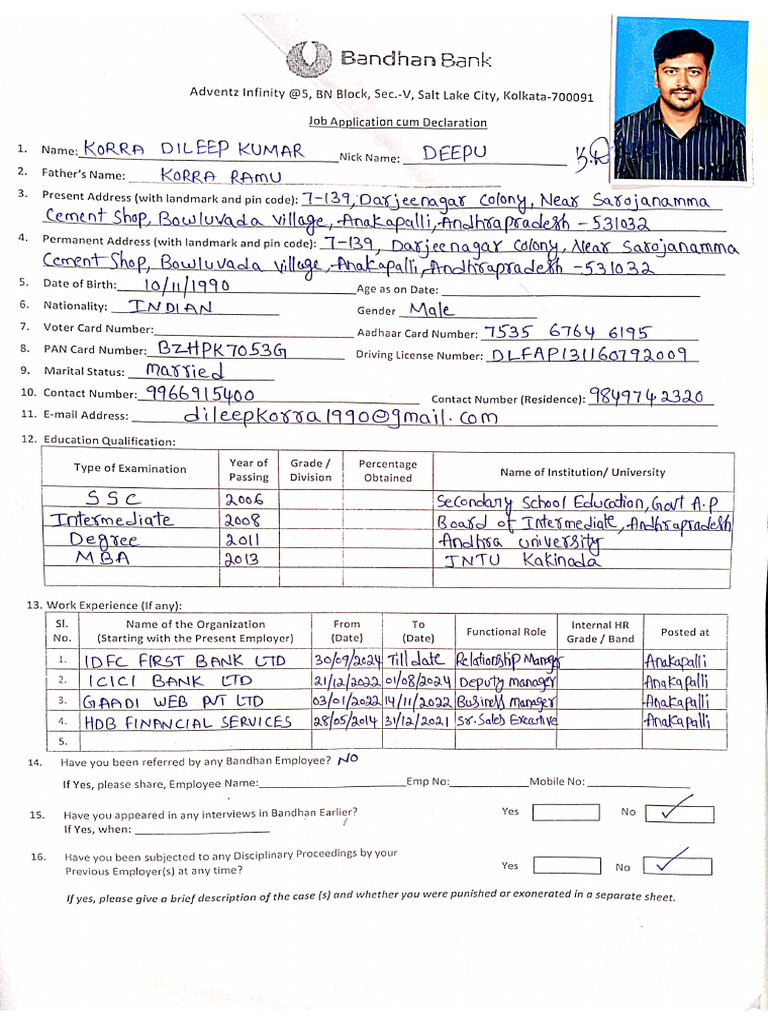 Bandhan Bank
Adventz Infinity @5, BN Block, Sec.-V, Salt Lake City, Kolkata-700091
Job Application cum Declaration
1. Name: KORRA DILEEP KUMAR Nick Name: DEEPU
2. Father's Name: KORRA RAMU
3. Present Address (with landmark and pin code): 7-139, Darjeenagar Colony, Near Sarojanamma
Cement Shop, Bowluvada Village, Anakapalli, Andhrapradesh - 531032
4. Permanent Address (with landmark and pin code): 7-139, Darjeenagar Colony, Near Sarojanamma
Cement Shop, Bowluvada Village, Anakapalli, Andhrapradesh - 531032
5. Date of Birth: 10/11/1990 Age as on Date:
6. Nationality: INDIAN Gender Male
7. Voter Card Number: Aadhaar Card Number: 7535 6764 6195
8. PAN Card Number: BZHPK7053G Driving License Number: DLFAP131160792009
9. Marital Status: married
10. Contact Number: 9966915400 Contact Number (Residence): 9849742320
11. E-mail Address: dileepkorra1990@gmail.com
12. Education Qualification:
Type of Examination Year of Passing Grade / Division Percentage Obtained Name of Institution/ University
SSC 2006 Secondary School Education, Govt A.P
Intermediate 2008 Board of Intermediate, Andhrapradesh
Degree 2011 Andhra university
MBA 2013 JNTU Kakinada
13. Work Experience (If any):
Sl. No. Name of the Organization (Starting with the Present Employer) From (Date) To (Date) Functional Role Internal HR Grade / Band Posted at
1. IDFC FIRST BANK LTD 30/09/2024 Till date Relationship Manager Anakapalli
2. ICICI BANK LTD 21/12/2022 01/08/2024 Deputy manager Anakapalli
3. GAADI WEB PVT LTD 03/01/2022 14/11/2022 Business Manager Anakapalli
4. HDB FINANCIAL SERVICES 28/05/2014 31/12/2021 Sr. Sales Executive Anakapalli
5.
14. Have you been referred by any Bandhan Employee? NO
If Yes, please share, Employee Name: Emp No: Mobile No:
15. Have you appeared in any interviews in Bandhan Earlier? Yes No
If Yes, when:
16. Have you been subjected to any Disciplinary Proceedings by your
Previous Employer(s) at any time? Yes No
If yes, please give a brief description of the case (s) and whether you were punished or exonerated in a separate sheet.